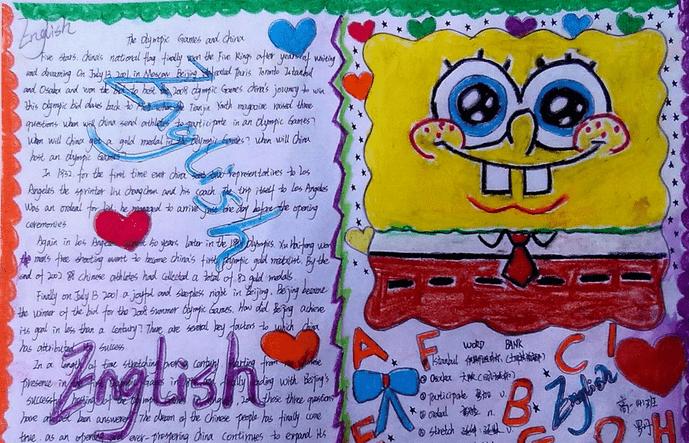 English
The Olympic Games and China
Five stars. China's national flag finally won the Five Rings after years of waiting
and dreaming On July 13 2001 in Moscow Beijing defeated Paris Toronto Istanbul
and Osaka and won the bid to host the 2008 Olympic Games China's journey to win
this Olympic bid dates back to Tianjin Youth magazine raised three
questions when will China send athletes to participate in an Olympic Games?
When will China get a gold medal in the Olympic Games? when will China
host an Olympic Games
English
In 1932 for the first time ever China sent representatives to Los
Angeles the sprinter Liu Changchun and his coach The trip itself to Los Angeles
was an ordeal for he managed to arrive just one day before the opening
ceremonies
Again in Los Angeles almost 50 years later in the Olympics. Xu Haifeng won
mens free shooting event to become China's first Olympic gold medalist. By the
end of 2002 Chinese athletes had collected a total of gold medals
Finally on July 13 2001 a joyful and sleepless night in Beijing. Beijing became
the winner of the bid for the 2008 summer Olympic Games. How did Beijing achieve
its goal in less than a century? There are several key factors to which China
has attributed success
English
In a length of time stretching over century starting from
presence in ending with Beijing's
success hosting of the Olympic Games those three questions
have been answered The dream of the Chinese people has finally come
true. as an opening ever-prospering China continues to expand its
A F C I
WORD BANK
Istanbul
Osaka
participate v.
ordeal n.
stretch
B
English
E G O H